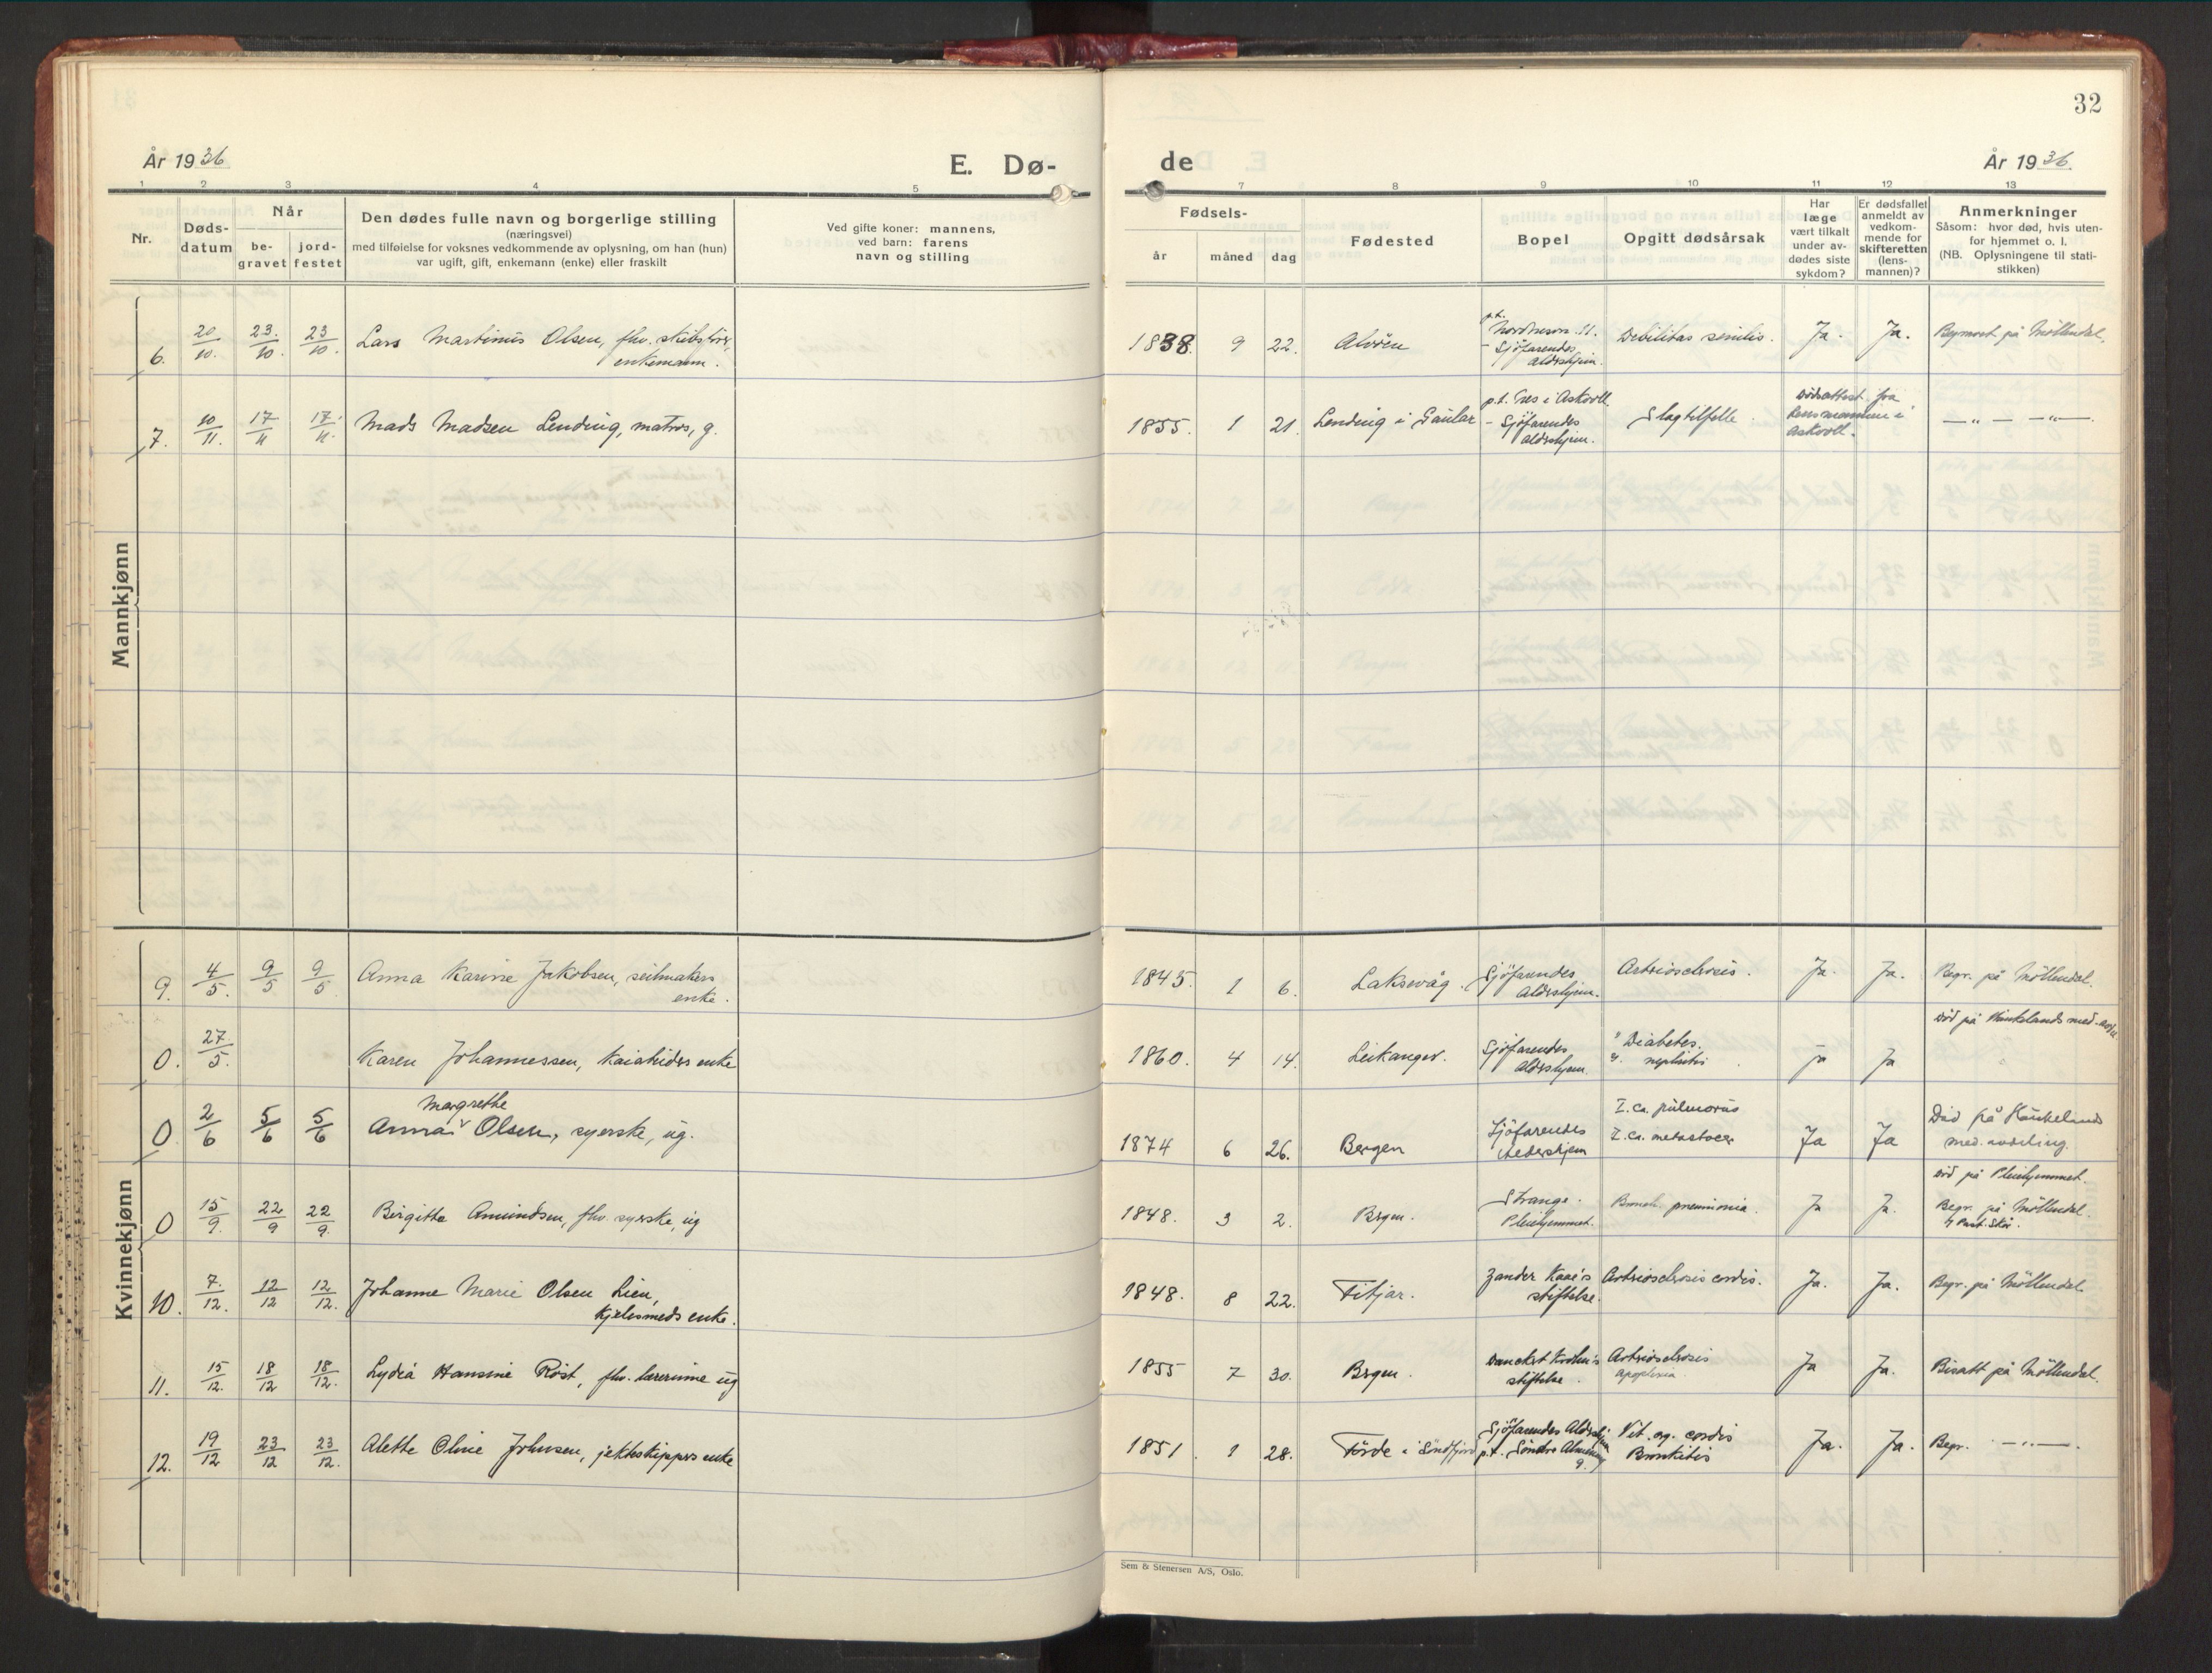 32
År 1936
E. Dø-
de
År 1936.
1 2 3 4 5
7 8 9 10 11 12 13
Nr.
Døds-
datum
Når
be-
gravet
jord-
festet
Den dødes fulle navn og borgerlige stilling
(næringsvei)
med tilføielse for voksnes vedkommende av oplysning, om han (hun)
var ugift, gift, enkemann (enke) eller fraskilt
Ved gifte koner: mannens,
ved barn: farens
navn og stilling
Fødsels-
år
måned
dag
Fødested
Bopel
Opgitt dødsårsak
Har
læge
vært tilkalt
under av-
dødes siste
sykdom?
Er dødsfallet
anmeldt av
vedkom-
mende for
skifteretten
(lens-
mannen)?
Anmerkninger
Såsom: hvor død, hvis uten-
for hjemmet o. l.
(NB. Oplysningene til stati-
stikken)
Mannkjønn
6. 20/10. 23./10. 23/10. Lars Martinus Olsen, fhv.
enkemann.
1838. 9 22. Alvøen
p.t.
Nordnesv. 11.
- Sjøfarendes
Aldershjem.
Debilitas senilis. Ja. Ja. på Möllendal.
7. 10/11. 17/11 17./11. Mads Madsen Lending, matros, g.
1855. 1 21. Lending i Gaular
p.t. i Askvoll
- Sjöfarendes
aldershjem.
Slagtilfelle
Dödsattest fra
lensmannen i
Askvoll.
— „ — — „ —
Kvinnekjønn
9. 4/5. 9/5 9/5 Anna Karine Jakobsen, seilmakers
enke.
1845. 1 6. Laksevåg.
Sjöfarendes
aldershjem.
Arteriosclerosis. Ja. Ja. Begr. på Möllendal.
0. 27./5. Karen Johannessen, enke
1860. 4 14. Leikanger.
Sjöfarendes
aldershjem.
Diabetes.
nephritis
ja ja
död på Haukelands med. avd.
0. 2/6 5/6 5/6
Margrethe
Anna Olsen, syerske, ug.
1874 6 26. Bergen
Sjöfarendes
Aldershjem
I. ca. pulmonis
I. ca. metastaser
Ja Ja
Död på Haukelands
med. avdeling.
0 15/9. 22/9 22/9. Birgitte Amundsen, fhv. syerske, ug
1848. 3 2. Bergen.
Strange.
Pleiehjemmet.
Bronch. pneumonia. Ja Ja.
död på Pleiehjemmet.
Begr. på Möllendal.
10. 7./12. 12/12 12/12. Johanne Marie Olsen Lien,
kjelesmeds enke.
1848. 8 22. Fitjar.
Zander Kaae's
stiftelse.
Arteriosclerosis cordis. Ja. Ja. Begr. på Möllendal.
11. 15/12. 18/12 18/12. Lydia Hansine Röst, fhv. lærerinne ug
1855 7 30. Bergen.
Danckert Krohn's
stiftelse.
Arteriosclerosis
apoplexia
Ja Ja. Bisatt på Möllendal.
12. 19/12 23/12 23/12. Alette Oline Johnsen, jekteskippers enke
1851. 1 28. Förde i Söndfjord
Sjöfarendes Aldershjem
p.t. Söndre Almenning
9.
Vit. org. cordis
Bronkitis
Ja. Ja. Begr. — „ — .
Sem & Stenersen A/S, Oslo.